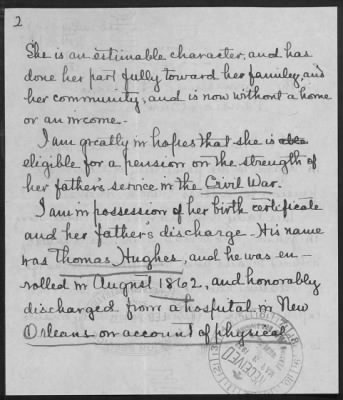 2
She is an estimable character, and has
done her part fully toward her family, and
her community, and is now without a home
or an income.
I am greatly in hopes that she is able
eligible for a pension on the strength of
her father's service in the Civil War.
I am in possession of her birth certificate
and her father's discharge. His name
was Thomas Hughes, and he was en-
rolled in August 1862, and honorably
discharged from a hospital in New
Orleans on account of physical
RECEIVED